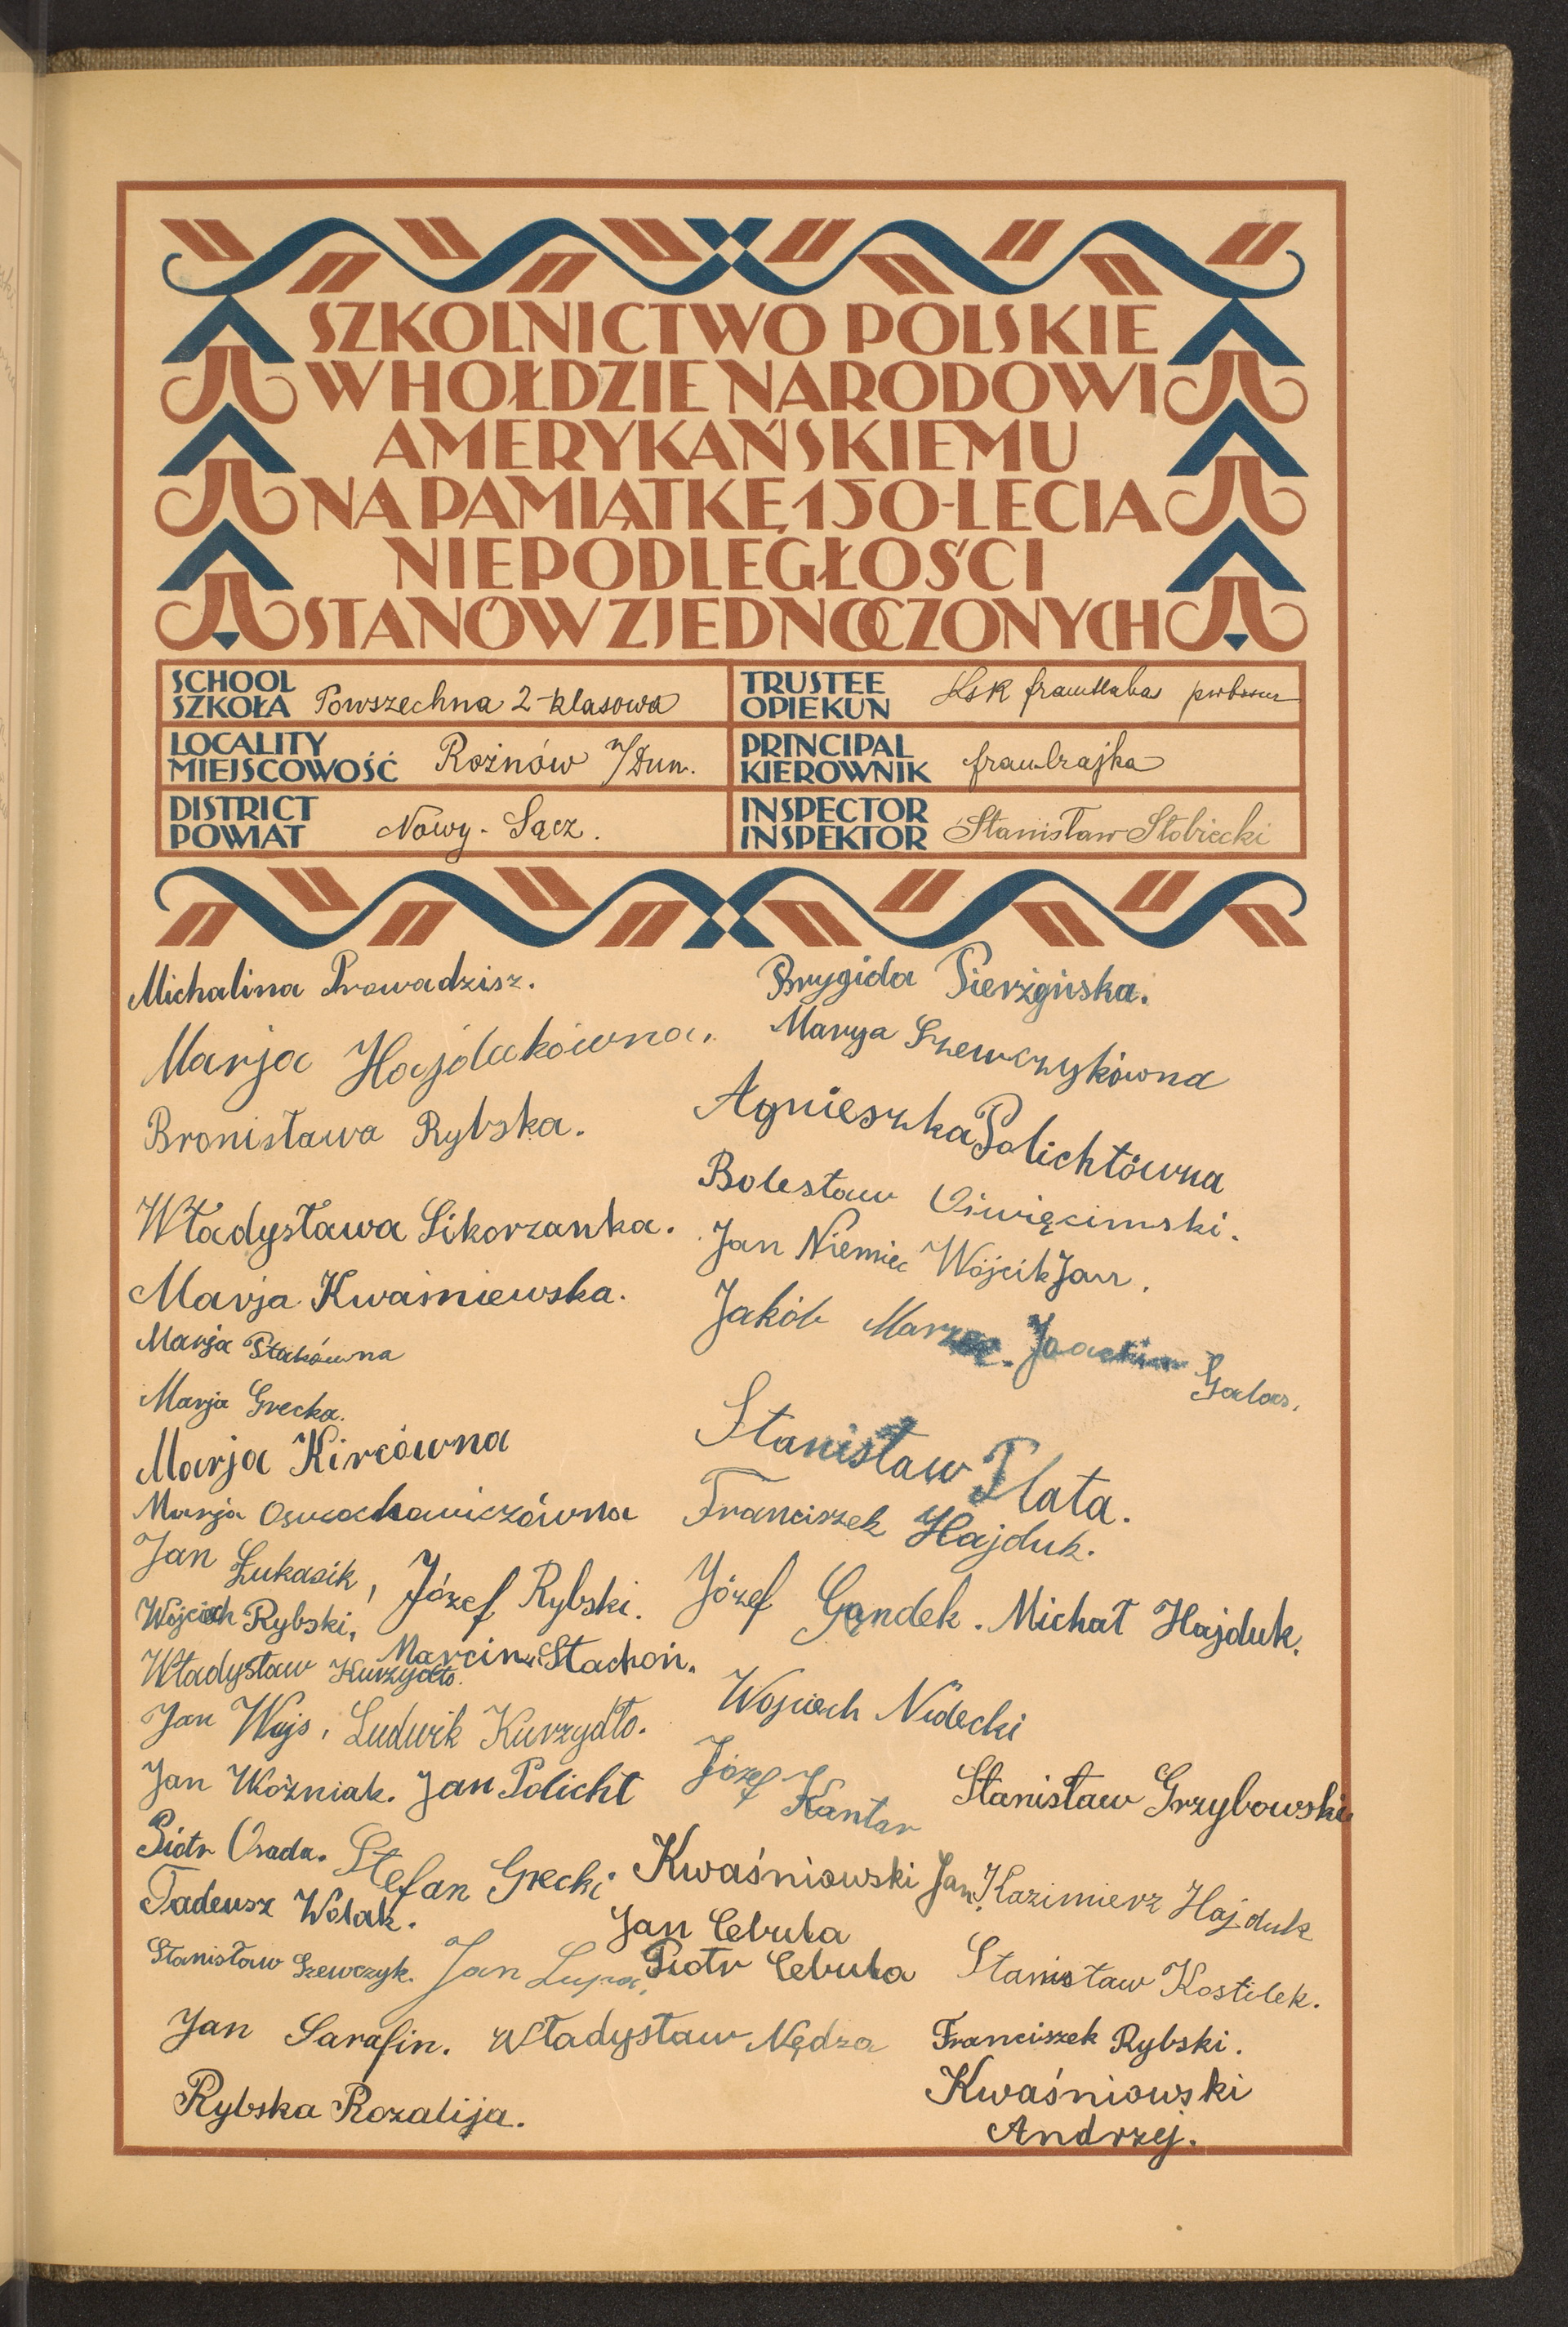 SZKOLNICTWO POLSKIE
W HOŁDZIE NARODOWI
AMERYKAŃSKIEMU
NA PAMIĄTKĘ 150-LECIA
NIEPODLEGŁOŚCI
STANÓW ZJEDNOCZONYCH
SCHOOL
SZKOŁA Powszechna 2-klasowa
TRUSTEE
OPIEKUN
LOCALITY
MIEJSCOWOŚĆ Rożnów n/Dun.
PRINCIPAL
KIEROWNIK
DISTRICT
POWIAT Nowy-Sącz.
INSPECTOR
INSPEKTOR Stanisław Słobiecki
Michalina Prowadzisz.
Marja Hajdukówna.
Bronisława Rybska.
Władysława Sikorzanka.
Marja Kwaśniewska.
Marja Stakówna
Marja Grecka.
Marja Kircówna
Marja
Jan Łukasik, Józef Rybski.
Wojciech Rybski,
Marcin Stachoń.
Władysław Kurzydło.
Jan Wojs, Ludwik Kurzydło.
Jan Woźniak. Jan Policht
Piotr Osada. Stefan Grecki
Tadeusz Wolak.
Stanisław Szewczyk. Jan Lupa,
Jan Sarafin. Władysław Nędza
Rybska Rozalija.
Brygida Sierżęńska.
Marya Szewczykówna
Agnieszka Polichtówna
Bolesław Oświęcimski.
Jan Niemiec Wójcik Jan.
Jakób Marzec. Joachim Galas.
Stanisław Plata.
Franciszek Hajduk.
Józef Gondek. Michał Hajduk.
Wojciech Nidecki
Józef Kantor
Stanisław Grzybowski
Kwaśniowski Jan, Kazimierz Hajduk
Jan Cebula
Piotr Cebula Stanisław Kostilek.
Franciszek Rybski.
Kwaśniowski
Andrzej.